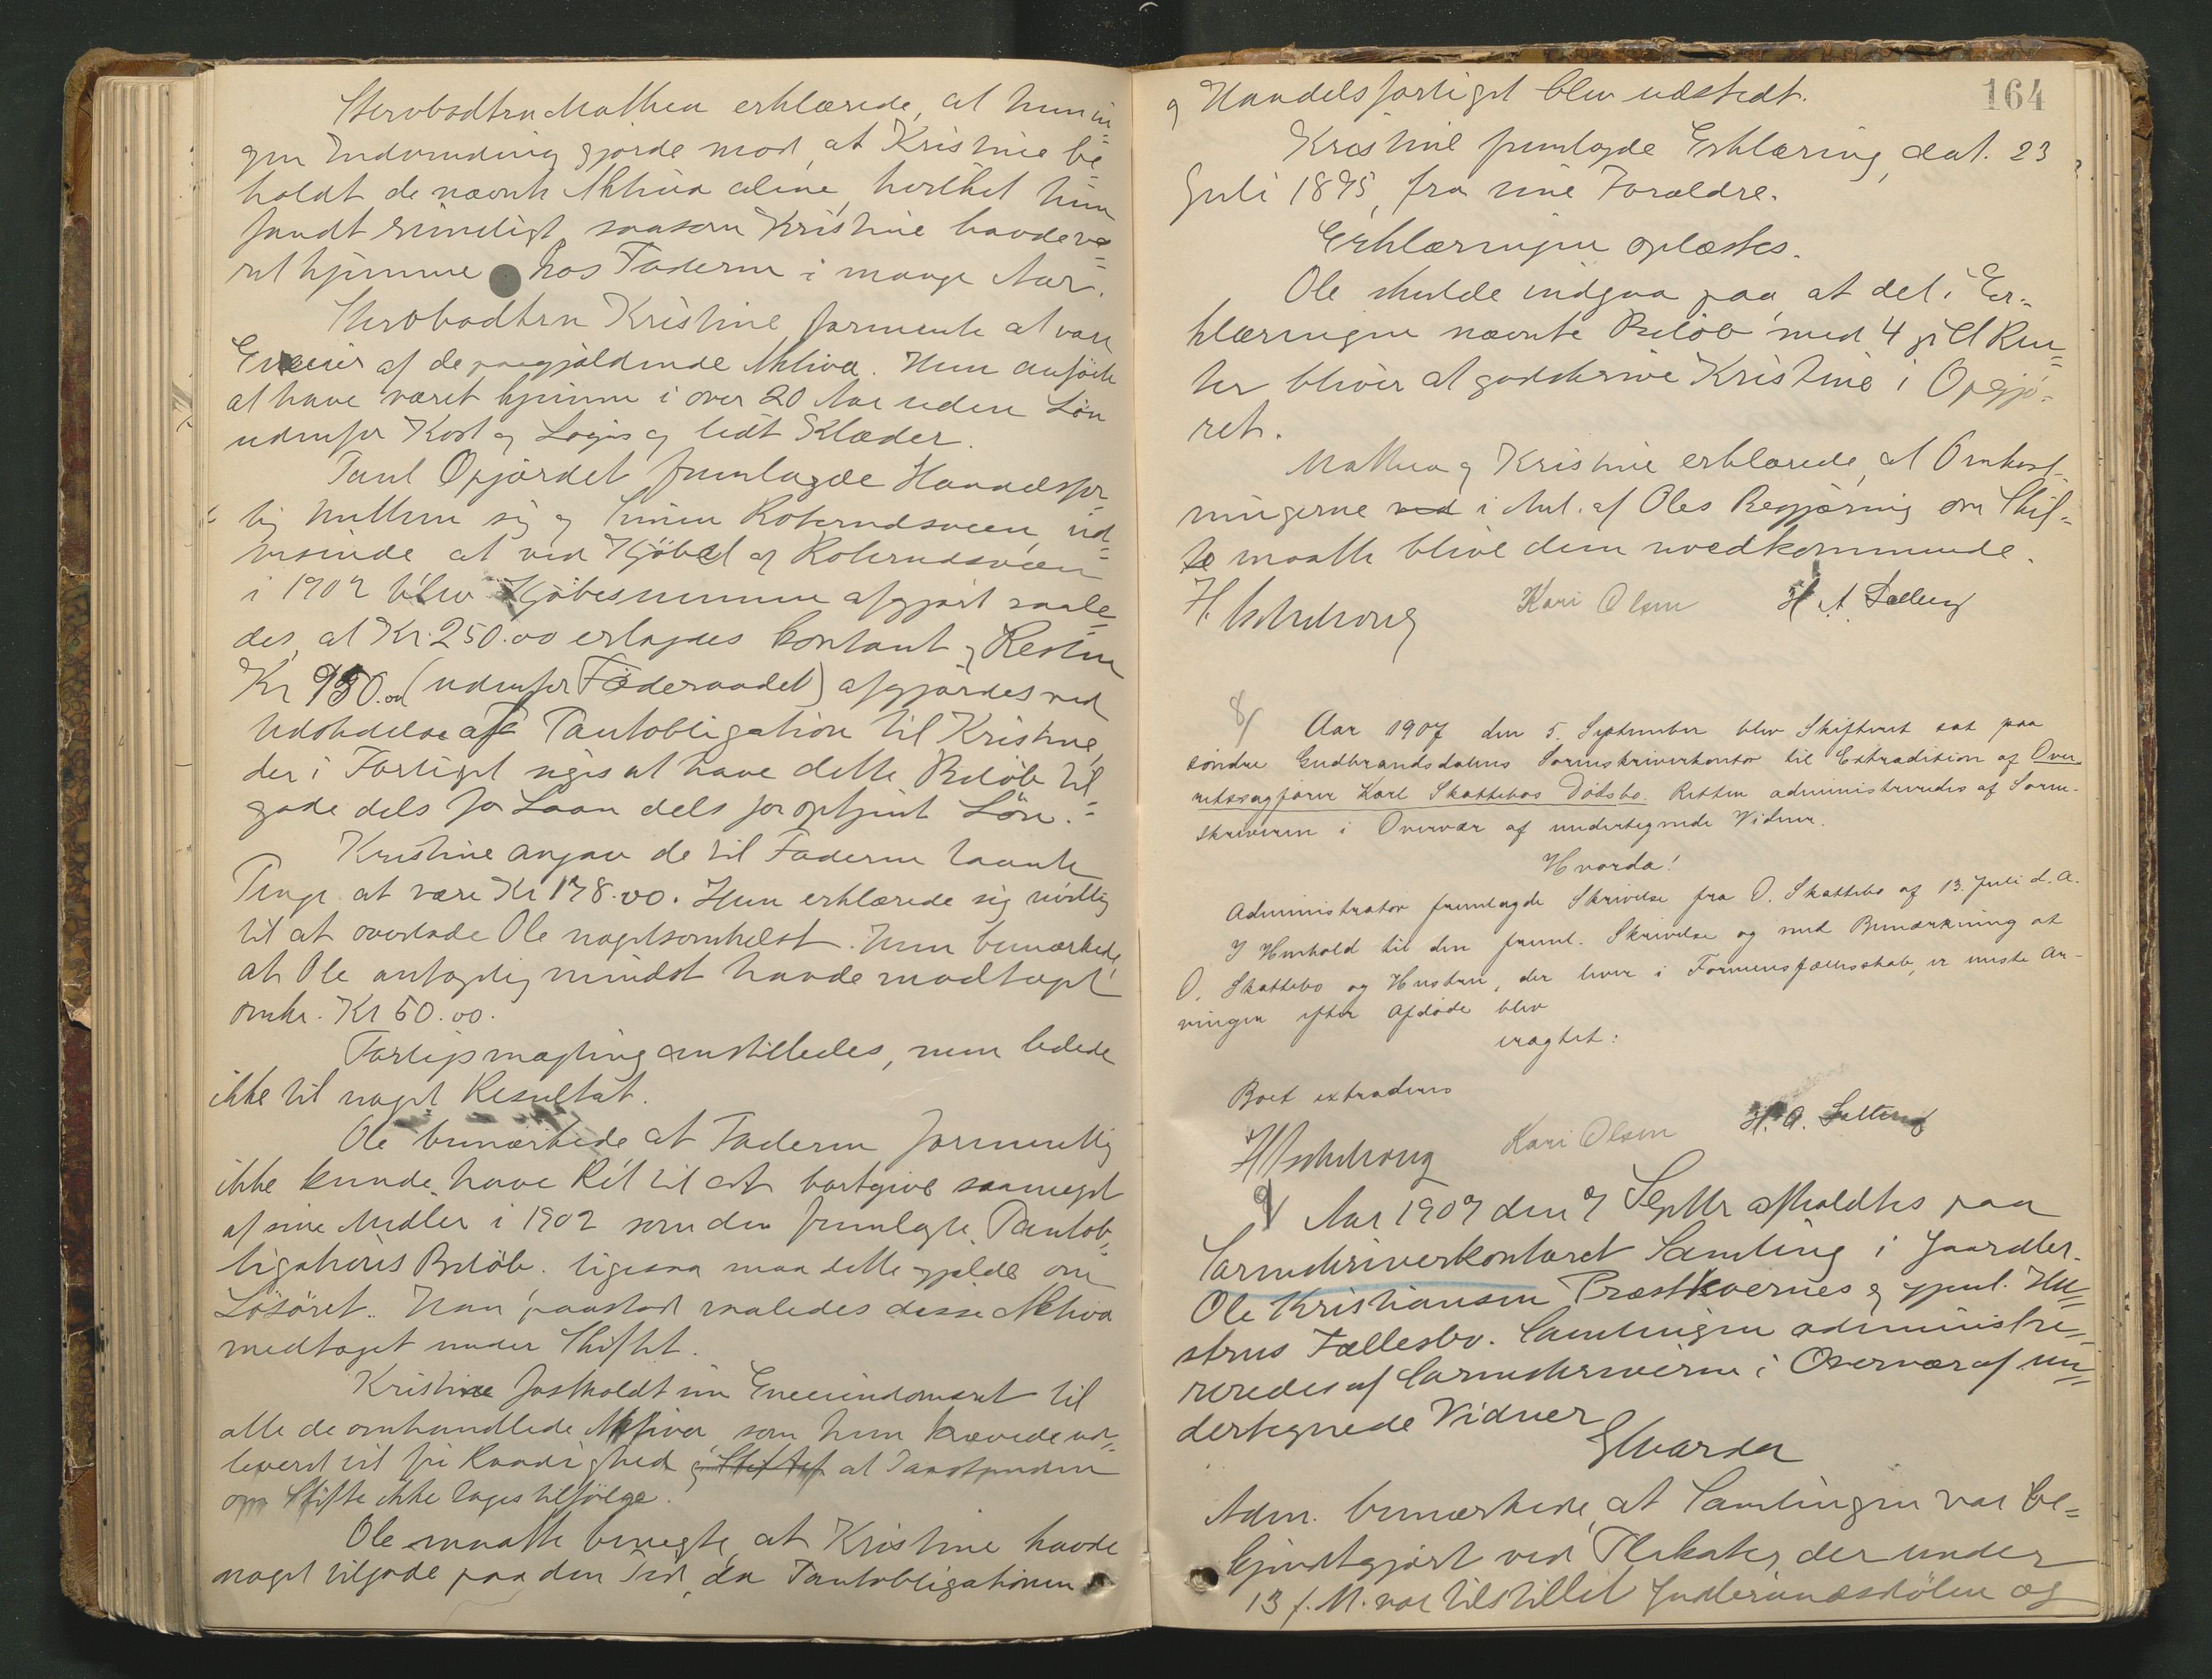 Stervbodtrn Mathea erklærede, at hun in-
gen Indvending gjorde mod, at Kristine be-
holdt de nævnte Aktiva alene, hvilket hun
fandt rimeligt, saasom Kristine havde væ-
ret hjemme hos Faderen i mange Aar.
Stervbodtrn Kristine formente at være
Eneeier af de paagjældende Aktiva. Hun anførte
at have været hjemme i over 20 Aar uden Løn
udenfor Kost og Logis og lidt Klæder.
Paul Opjordet fremlagde Handelsfor-
lig mellem sig og Simen Roterudsveen, ud-
visende at ved Kjøbet af Roterudsveen
i 1902 blev Kjøbesummen afgjort saale-
des, at Kr. 250.00 erlagdes kontant og Resten
Kr 950.00 (udenfor Føderaadet) afgjordes ved
Udstedelse af Pantobligation til Kristine,
der i Forliget siges at have dette Beløb til-
gode dels for Laan dels for optjent Løn.
Kristine angav de til Faderen laante
Penge at være Kr 178.00. Hun erklærede sig uvillig
til at overlade Ole nogetsomhelst. Hun bemærkede,
at Ole antagelig mindst havde modtaget
omkr. Kr 50.00.
Forligsmægling anstilledes, men ledede
ikke til noget Resultat.
Ole bemærkede at Faderen formentlig
ikke kunde have Ret til at bortgive saameget
af sine Midler i 1902 som den fremlagte Pantob-
ligations Beløb. ligesaa maa dette gjelde om
Løsøret. Han paastod saaledes disse Aktiva
medtaget under Skiftet.
Kristine fastholdt sin Eneeiendomsret til
alle de omhandlede Aktiver, som hun krævede ud-
leveret til fri Raadighed og Skiftet at Paastanden
om Skifte ikke tages tilfølge.
Ole maatte benegte, at Kristine havde
noget tilgode paa den Tid, da Pantobligationen
164
og Handelsforliget blev udstedt.
Kristine fremlagde Erklæring, dat. 23
Juli 1895, fra sine Forældre.
Erklæringen oplæstes.
Ole skulde indgaa paa, at det i Er-
klæringen nævnte Beløb med 4 pCt Ren-
ter bliver at godskrive Kristine i Opgjø-
ret.
Mathea og Kristine erklærede, at Omkost-
ningerne ved i Anl. af Oles Begjæring om Skif-
te maatte blive dem uvedkommende.
Kari Olsen
8/ Aar 1907 den 5. September blev Skifteret sat paa
søndre Gudbrandsdalens Sorenskriverkontor til Extradition af Over-
retssagfører Karl Skattebos Dødsbo. Retten administreredes af Soren-
skriveren i Overvær af undertegnede Vidner.
Hvorda!
Administrator fremlagde Skrivelse fra O. Skattebo af 13. Juli d.A.
I Henhold til den freml. Skrivelse og med Bemærkning at
O. Skattebo og Hustru, der lever i Formuesfællesskab, er eneste Ar-
vinger efter Afdøde blev
eragtet:
Boet extraderes
Kari Olsen
9/ Aar 1907 den 7 Septbr afholdtes paa
Sorenskriverkontoret Samling i Gaardbr.
Ole Kristiansen Præstkvernes og gjenl. Hu-
strus Fællesbo. Samlingen administre-
reredes af Sorenskriveren i Overvær af un-
dertegnede Vidner
Hvorda
Adm. bemærkede, at Samlingen var be-
kjendtgjort ved Plakater, der under
13 f. M. var tilstillet og